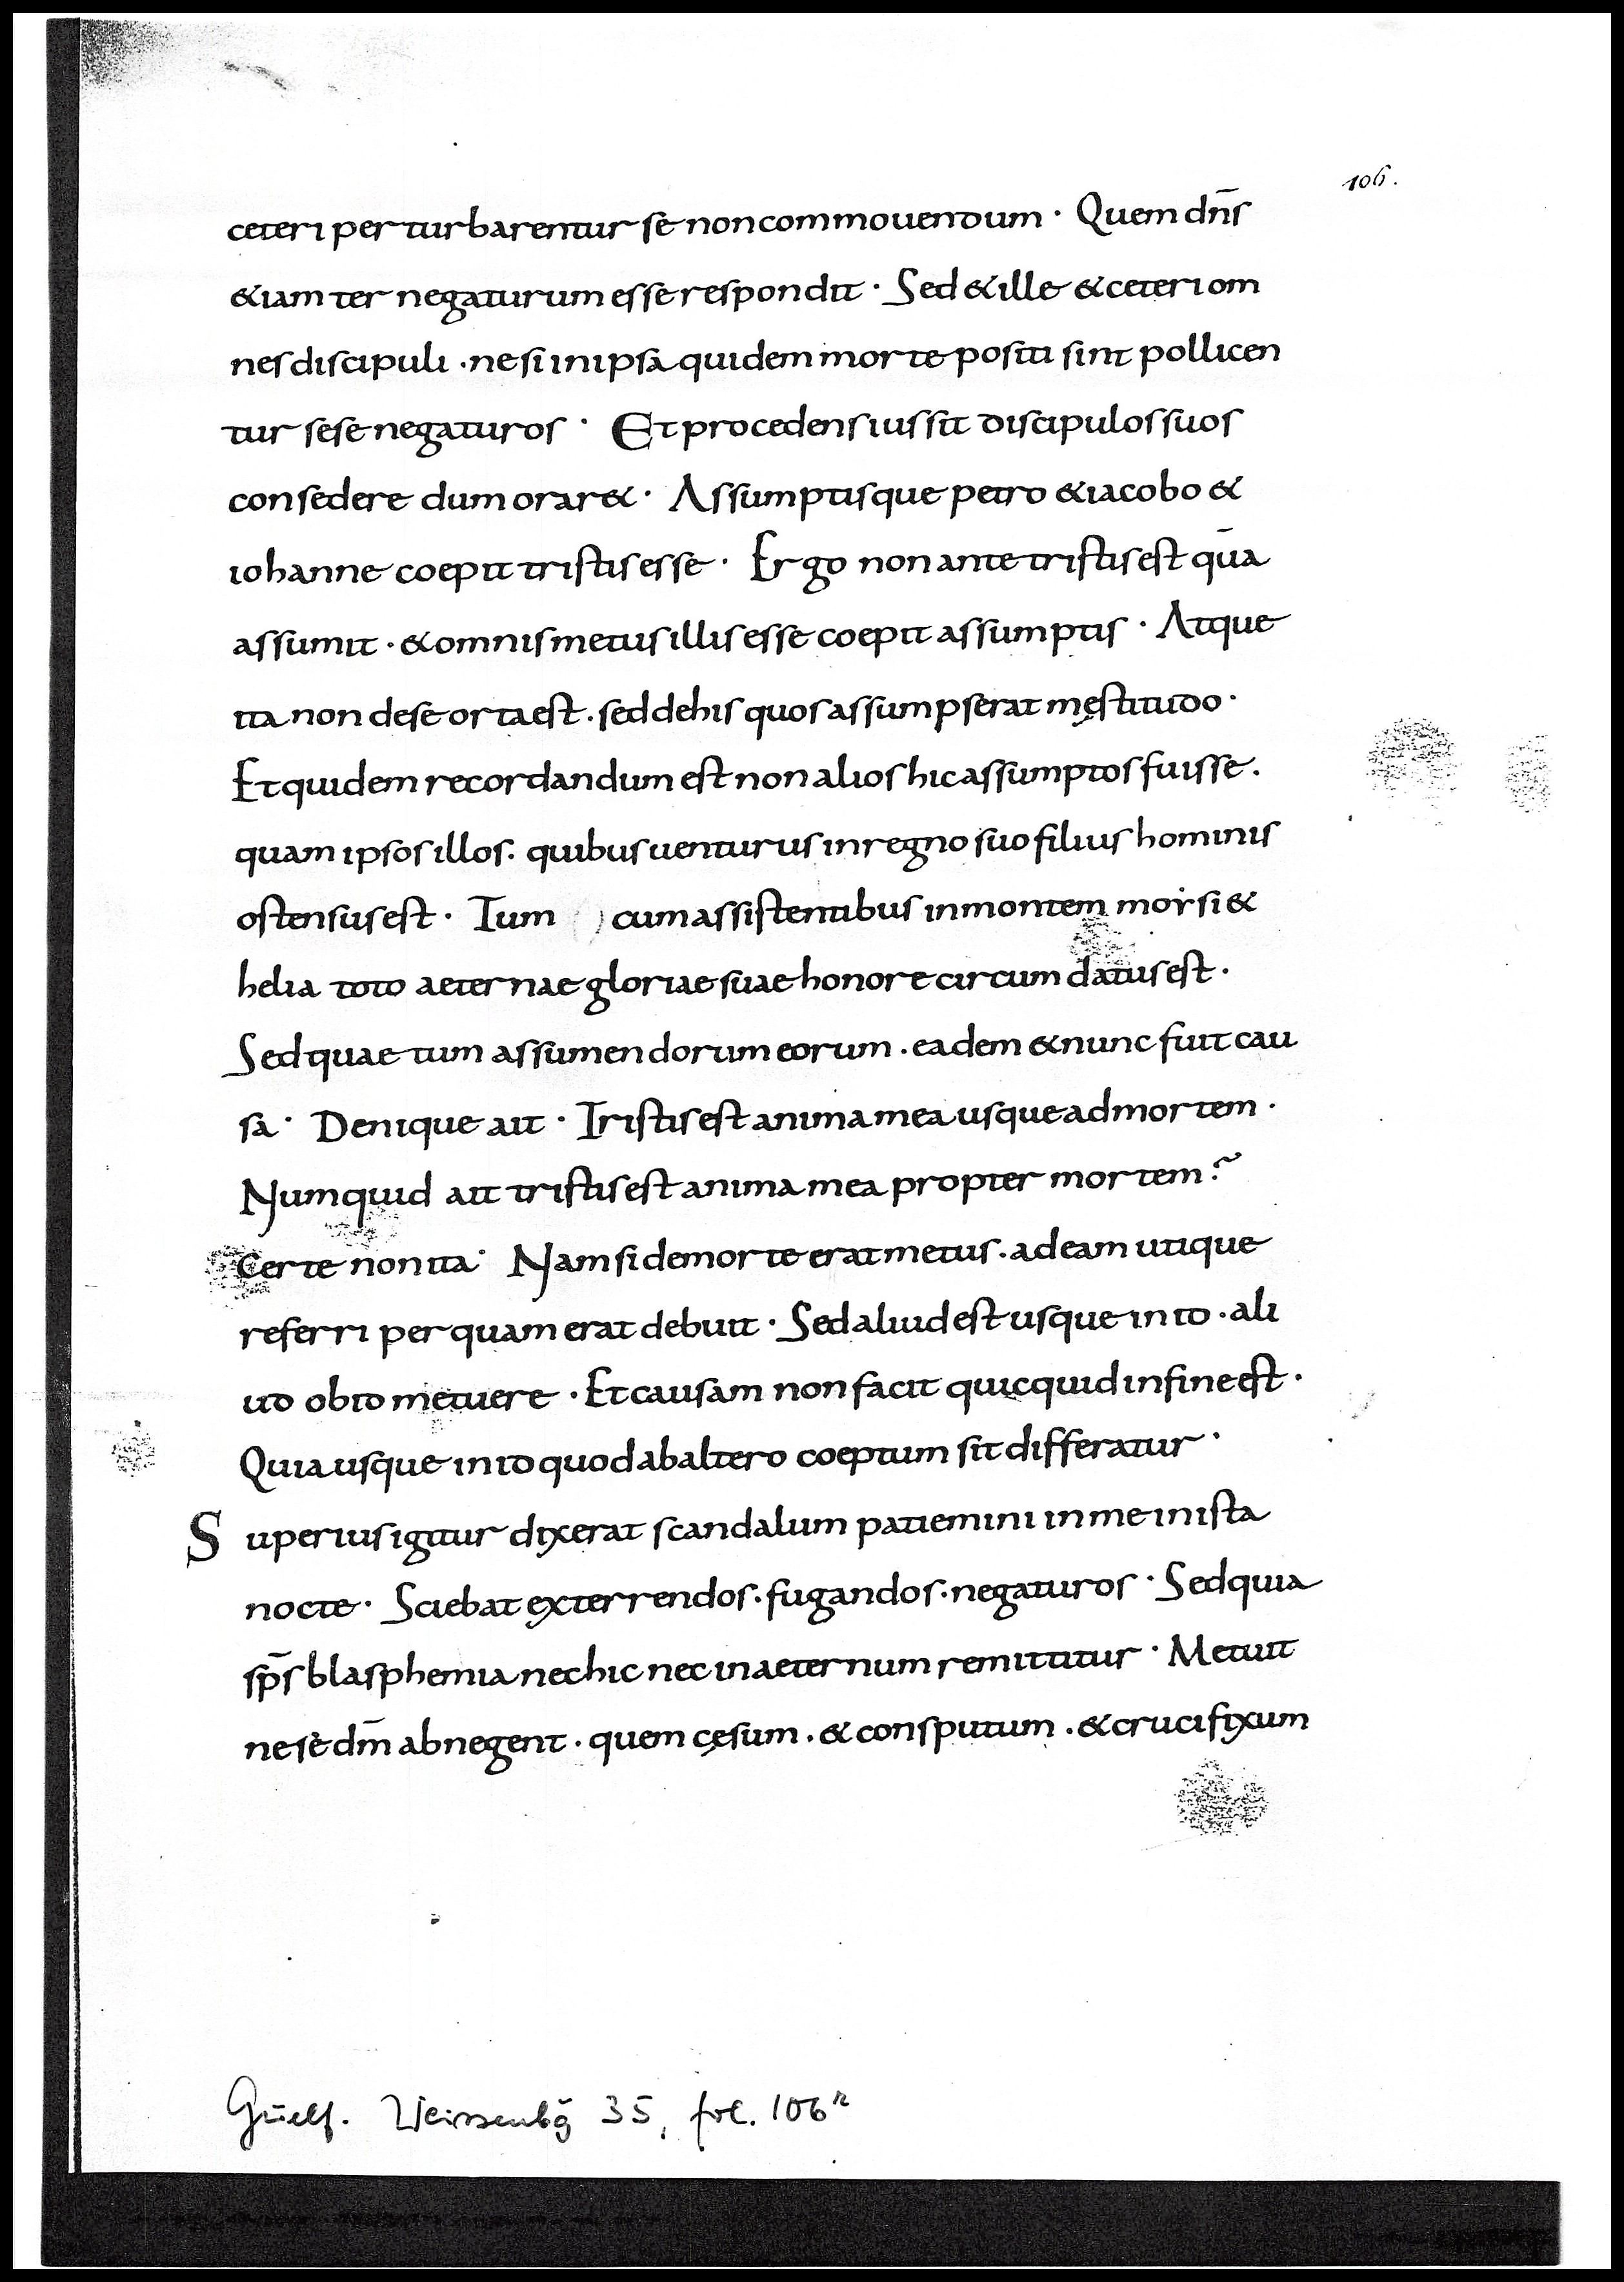 106.
ceteri perturbarentur se non commouendum · Quem dn̄s
&iam ter negaturum esse respondit · Sed & ille & ceteri om
nes discipuli · ne si in ipsa quidem morte positi sint pollicen
tur sese negaturos · Et procedens iussit discipulos suos
consedere dum orar& · Assumptisque petro & iacobo &
iohanne coepit tristis esse · Ergo non ante tristis est quā
assumit · & omnis metus illis esse coepit assumptis · Atque
ita non de se orta est · sed de his quos assumpserat męstitudo ·
Et quidem recordandum est non alios hic assumptos fuisse ·
quam ipsos illos · quibus uenturus in regno suo filius hominis
ostensus est · Tum cum assistentibus in montem morsi &
helia toto aeternae gloriae suae honore circumdatus est ·
Sed quae tum assumendorum eorum · eadem & nunc fuit cau
sa · Denique ait · Tristis est anima mea usque ad mortem ·
Numquid ait tristis est anima mea propter mortem?
Certe non ita · Nam si de morte erat metus · ad eam utique
referri per quam erat debuit · Sed aliud est usque in id · ali
ud ob id metuere · Et causam non facit quicquid in fine est ·
Quia usque in id quod ab altero coeptum sit differatur ·
Superius igitur dixerat scandalum patiemini in me in ista
nocte · Sciebat exterrendos · fugandos · negaturos · Sed quia
sp̄s blasphemia nec hic nec in aeternum remittitur · Metuit
ne se dm̄ abnegent · quem cęsum · & consputum · & crucifixum
Guelf. Weissenbg 35, fol. 106r